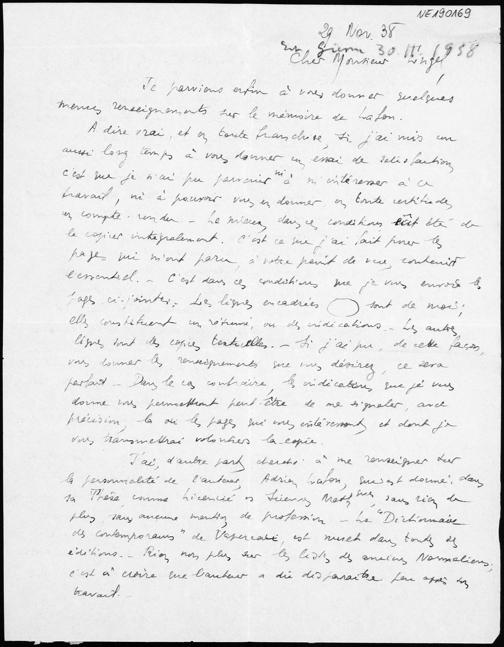 NE190169
29 Nov. 38
30 III 1938
Cher Monsieur
Je parviens enfin à vous donner quelques
menus renseignements sur le mémoire de Lafon.
A dire vrai, et en toute franchise, si j'ai mis un
aussi long temps à vous donner un essai de satisfaction
c'est que je n'ai pu parvenir ni à m'intéresser à ce
travail, ni à pouvoir vous en donner en toute certitude
un compte-rendu - Le mieux, dans ces conditions eût été de
le copier intégralement. C'est ce que j'ai fait pour les
pages qui m'ont paru, à votre point de vue, contenir
l'essentiel. - C'est dans ces conditions que je vous envoie les
pages ci-jointes. Les lignes encadrées sont de moi;
elles constituent un résumé, ou des indications - Les autres
lignes sont des copies textuelles. - Si j'ai pu, de cette façon,
vous donner les renseignements que vous désirez, ce sera
parfait - Dans le cas contraire, les indications que je vous
donne vous permettront peut être de me signaler, avec
précision, la ou les pages qui vous intéressent, et dont je
vous transmettrai volontiers la copie.
J'ai, d'autre part, cherché à me renseigner sur
la personnalité de l'auteur, Adrien Lafon, qui est donné, dans
sa Thèse, comme Licencié ès Sciences Math ques, sans rien de
plus, sans aucune mention de profession - Le "Dictionnaire
des contemporains" de Vapereau, est muet dans toutes ses
éditions. - Rien non plus sur les listes des anciens Normaliens;
c'est à croire que l'auteur a dû disparaître peu après son
travail. -